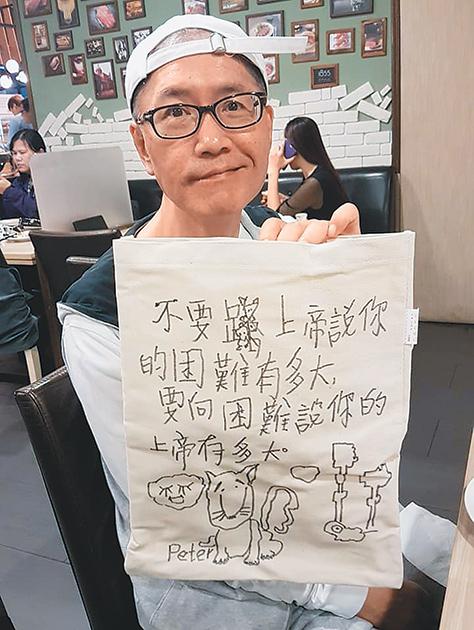 不要上帝說你
的困難有多大,
要向困難說你的
上帝有多大。
Peter